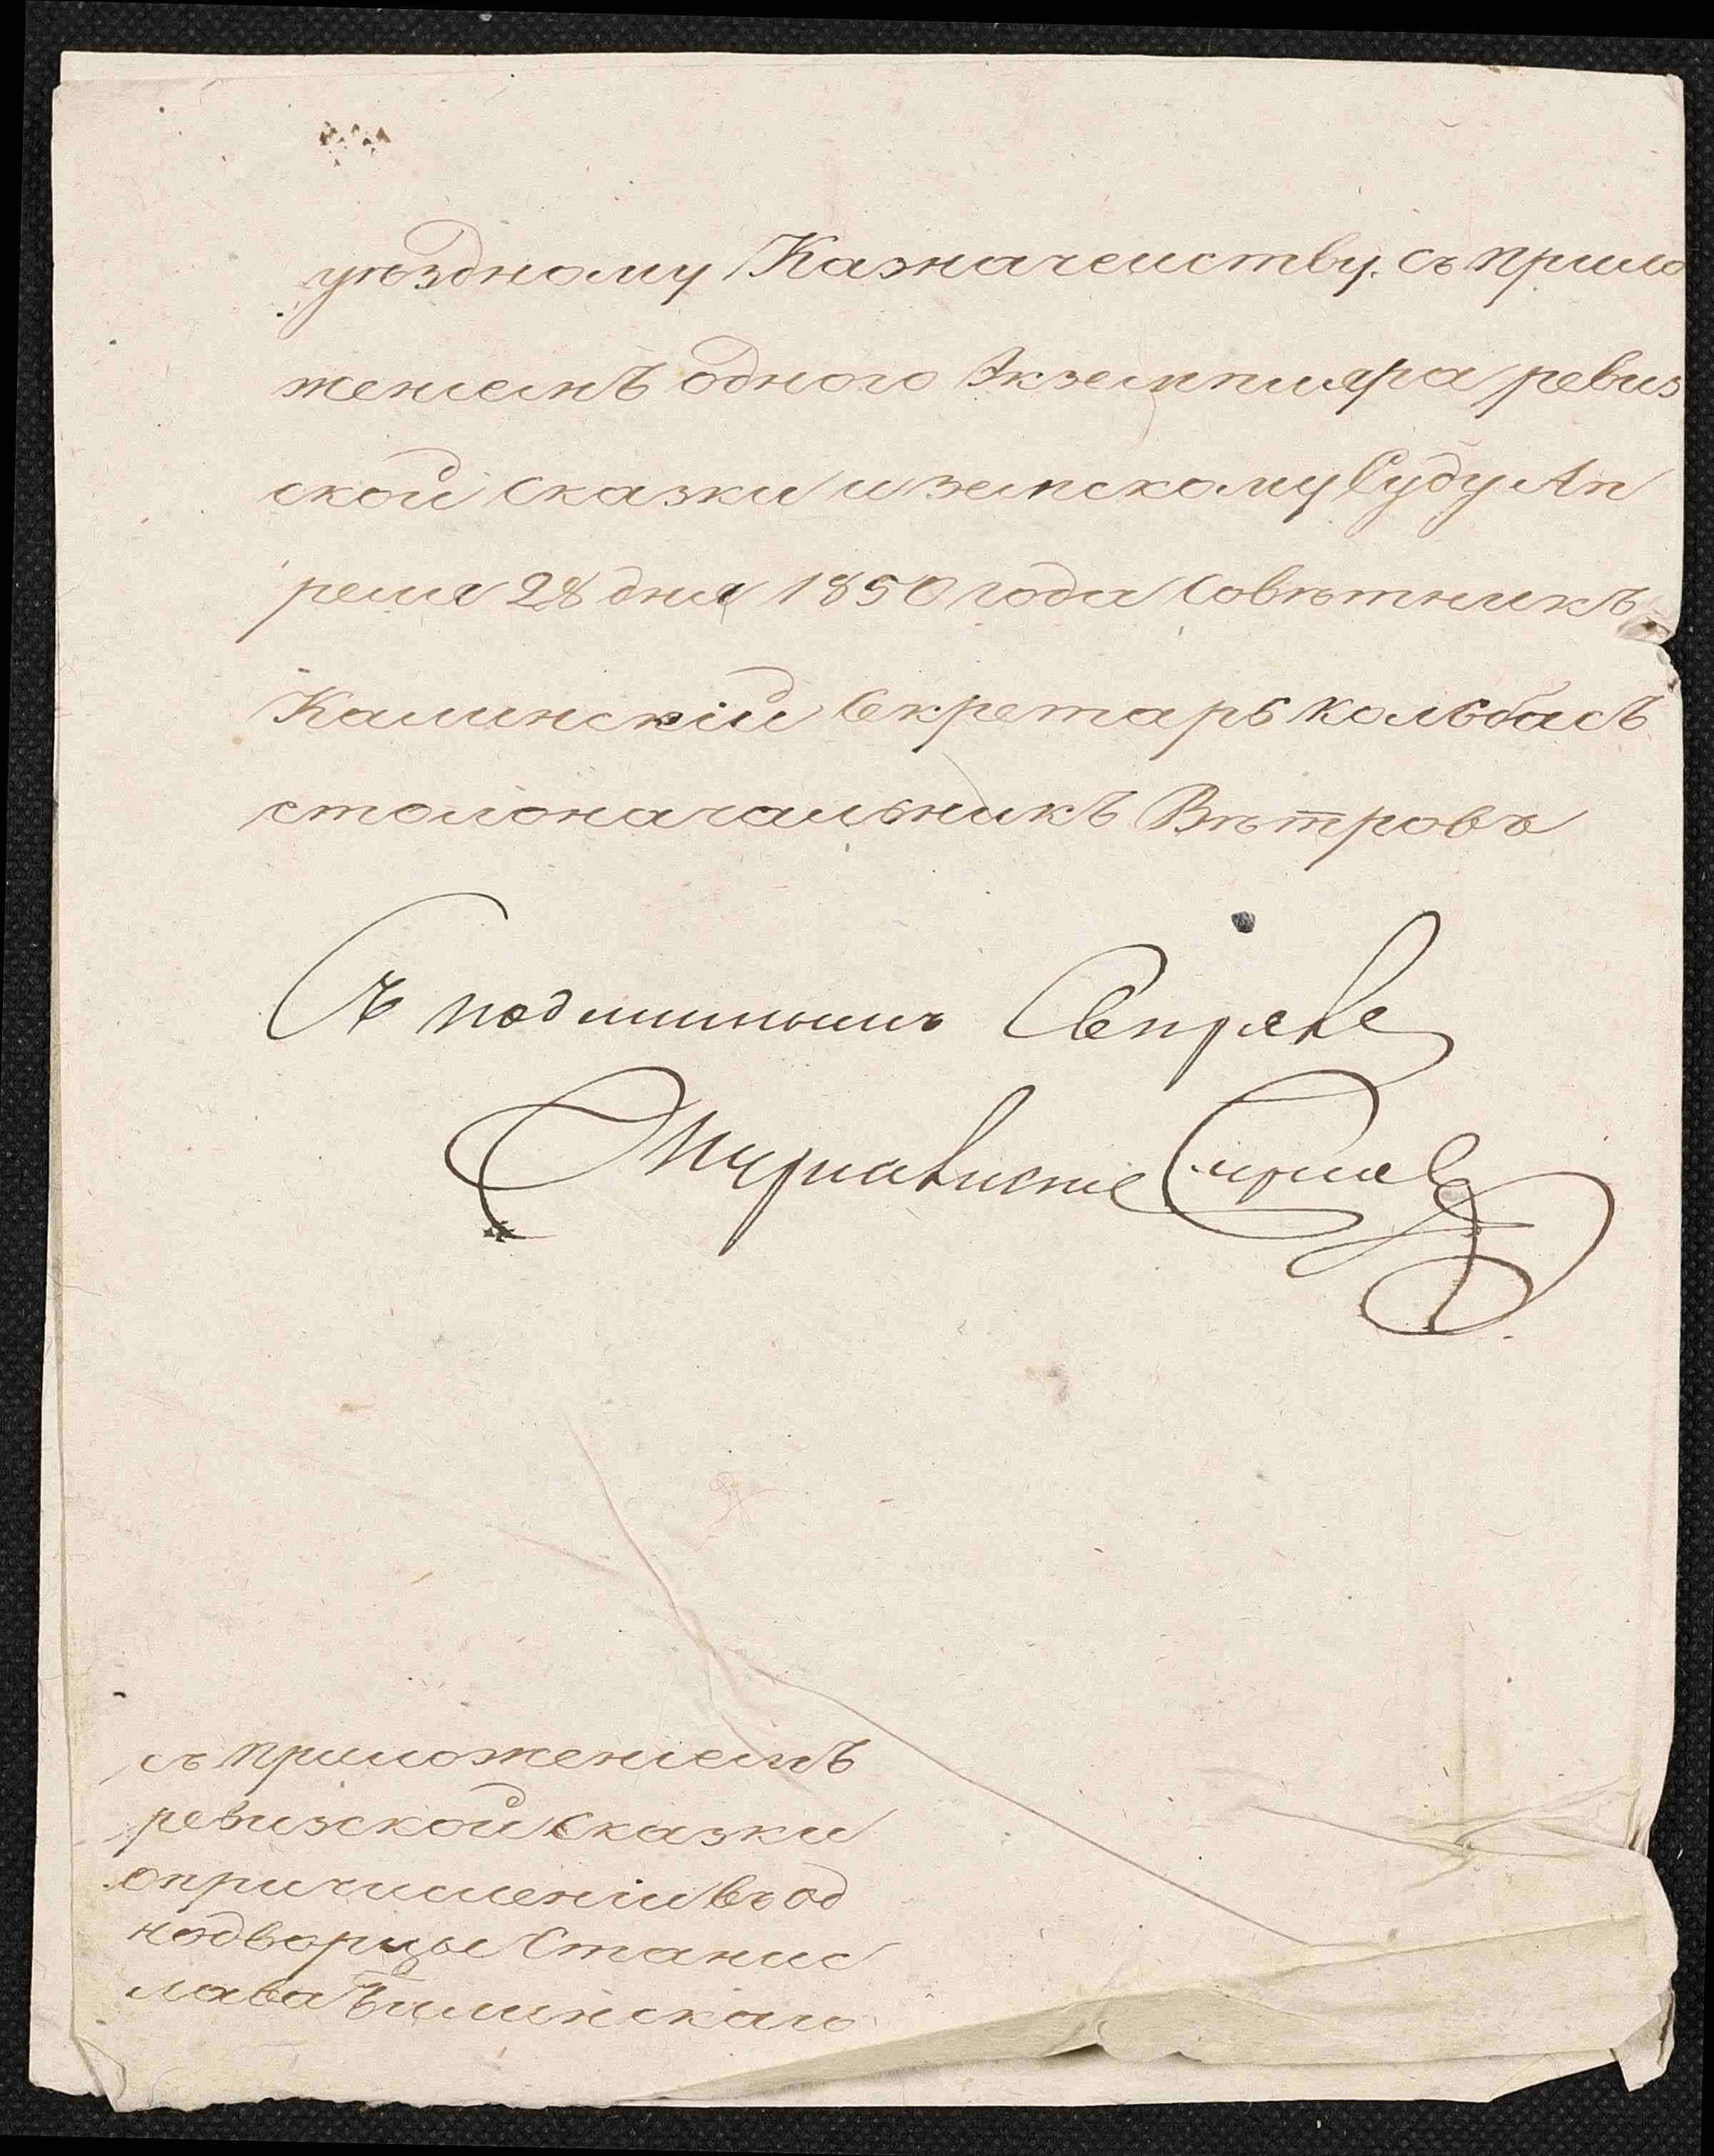 уѣздному Казначеиству съ прило
женіемъ одного экземпляра ревиз
ской сказки и земскому Суду Ап
реля 28 дня 1850 года Совѣтникъ
Калинскій Секретарь Кольбасъ
столоначальникъ Вѣтровъ
Съ подлиннымъ
съ приложеніемъ
ревизской сказки
о причисленіи въ од
нодворцы Станис
лава Билинскаго